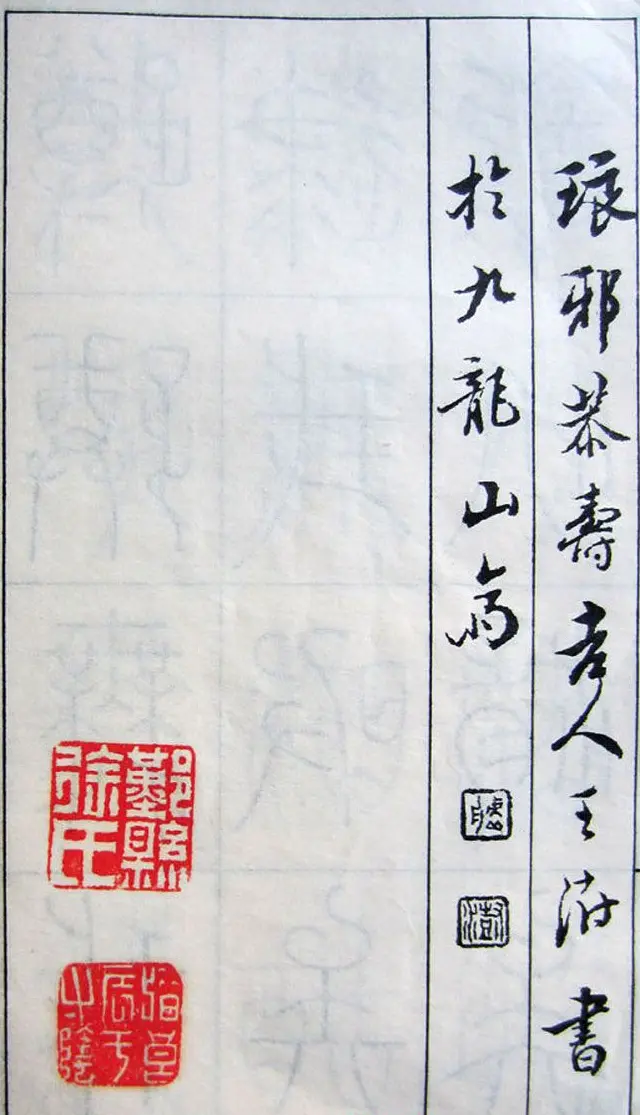 琅邪恭壽老人王澍書
於九龍山齋
虛舟
澍
鄞縣徐氏